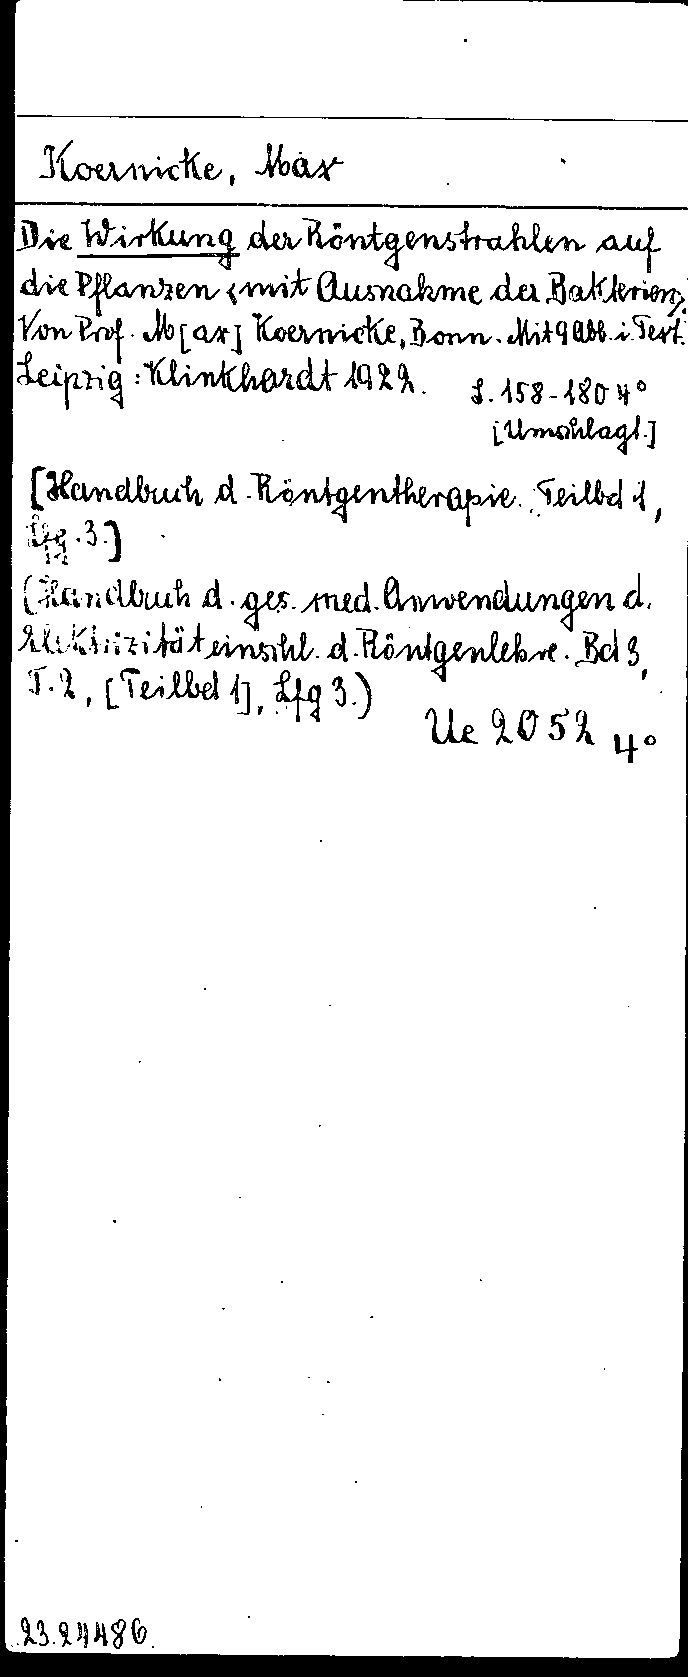 Koernicke, Max
Die Wirkung der Röntgenstrahlen auf
die Pflanzen <mit Ausnahme der Bakterien>.
Von Prof. M[ax] Koernicke, Bonn. Mit 9 Abb. i. Text.
Leipzig: Klinkhardt 1922. S. 158-180 4°
[Umschlagt.]
[Handbuch d. Röntgentherapie. Teilbd 1,
Lfg. 3.]
(Handbuch d. ges. med. Anwendungen d.
Elektrizität einschl. d. Röntgenlehre. Bd 3,
T. 2, [Teilbd 1], Lfg 3.)
Ue 2052 4°
23.24486